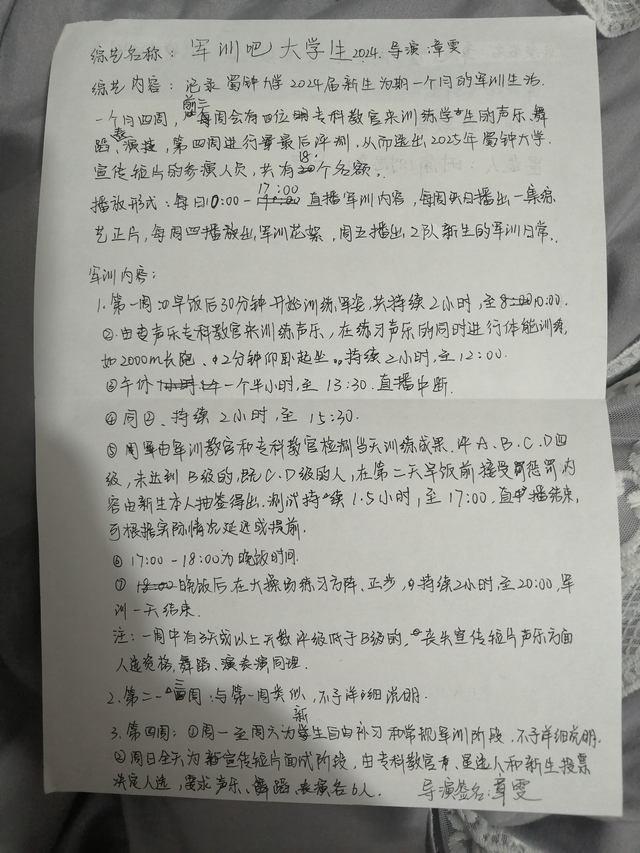 综艺名称：军训吧大学生2024. 导演：章雯
综艺内容：记录蜀钟大学2024届新生为期一个月的军训生活.
一个月四周，前三每周会有四位专科教官来训练学生的声乐、舞
蹈、表演，第四周进行最后评测，从而选出2025年蜀钟大学
宣传短片的参演人员，共有18个名额.
播放形式：每日10:00-17:00直播军训内容，每周六日播出一集综
艺正片，每周四播放出军训花絮，周五播出2队新生的军训日常.
军训内容：
1. 第一周：①早饭后30分钟开始训练军姿，共持续2小时，至10:00.
②由声乐专科教官来训练声乐，在练习声乐的同时进行体能训练，
如2000m长跑、2分钟仰卧起坐。持续2小时，至12:00.
③午休一个半小时，至13:30. 直播中断.
④同②、持续2小时，至15:30.
⑤由军训教官和专科教官检测当天训练成果. 评A、B、C、D四
级，未达到B级的，既C、D级的人，在第二天早饭前接受惩罚，内
容由新生本人抽签得出. 测试持续1.5小时，至17:00. 直播结束，
可根据实际情况延迟或提前.
⑥17:00-18:00为晚饭时间.
⑦晚饭后在大操场练习方阵、正步，持续2小时，至20:00，军
训一天结束.
注：一周中有3天或以上天数评级低于B级的，丧失宣传短片声乐方面
人选资格，舞蹈、表演同理.
2. 第二-三周：与第一周类似，不予详细说明.
3. 第四周：①周一至周六为新生自由补习和常规军训阶段，不予详细说明.
②周日全天为宣传短片面试阶段，由专科教官、星选人和新生投票
决定人选，要求声乐、舞蹈、表演各6人.
导演签名：章雯